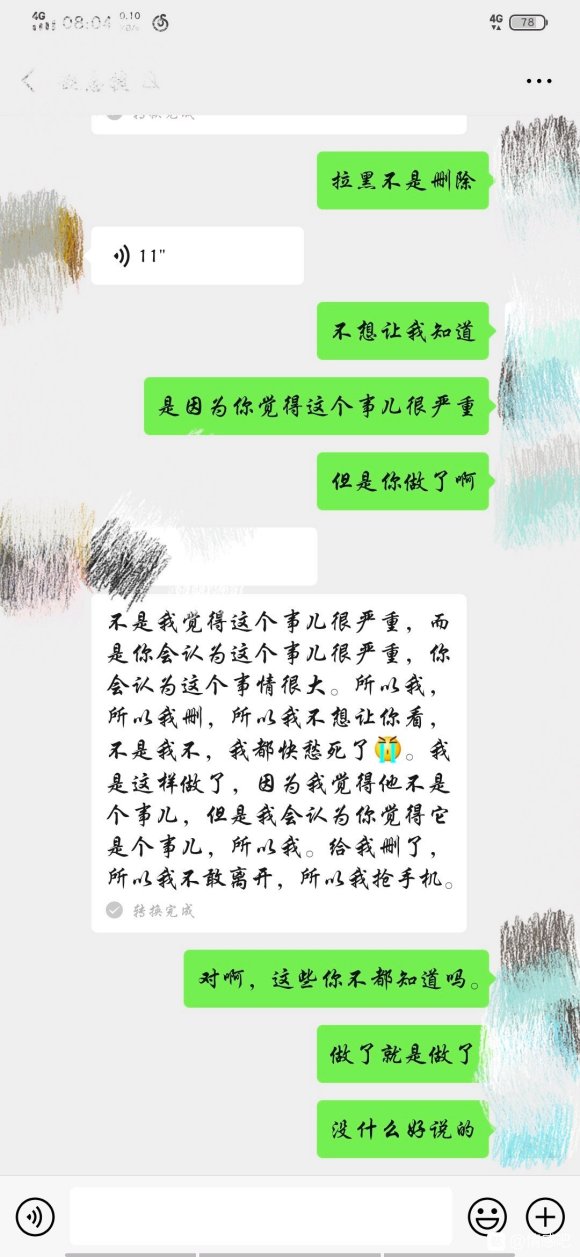 4G
08:04
0.10
KB/s
4G
78
转换完成
拉黑不是删除
11"
不想让我知道
是因为你觉得这个事儿很严重
但是你做了啊
不是我觉得这个事儿很严重，而
是你会认为这个事儿很严重，你
会认为这个事情很大。所以我，
所以我删，所以我不想让你看，
不是我不，我都快愁死了😭。我
是这样做了，因为我觉得他不是
个事儿，但是我会认为你觉得它
是个事儿，所以我。给我删了，
所以我不敢离开，所以我抢手机。
转换完成
对啊，这些你不都知道吗。
做了就是做了
没什么好说的